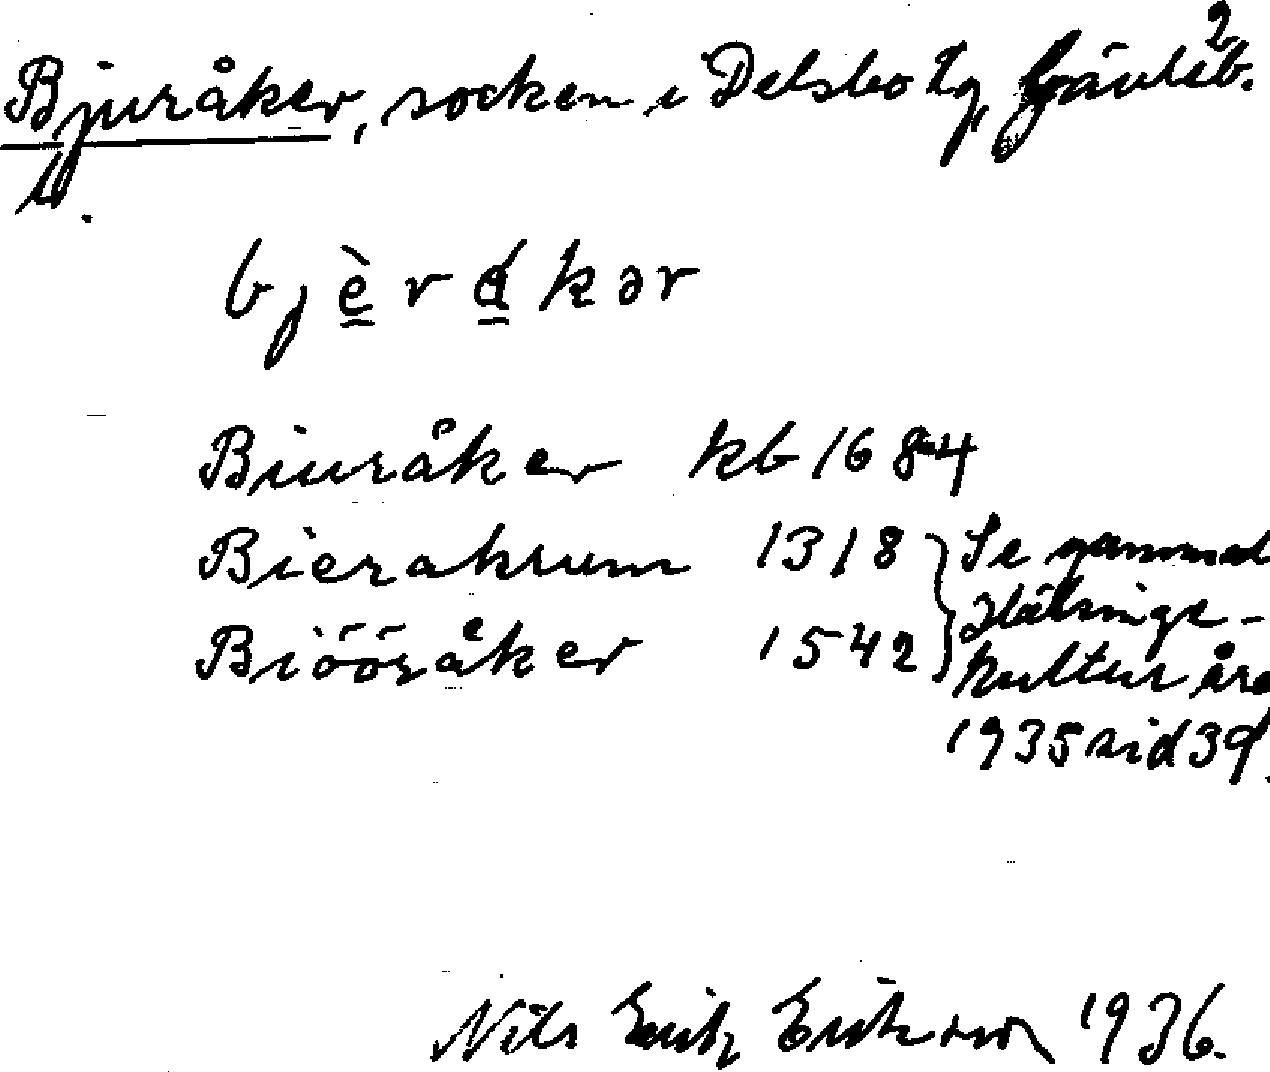 Bjuråker, socken i Delsbo tg, Gävleb. 2
bjèrákər
Biuråker kb 1684
Bierakrum 1318 } Se gammal
Hälsinge-
Biööråker 1542 } kultur åre
1935 sid 39.
Nils Erik Eriksson 1936.